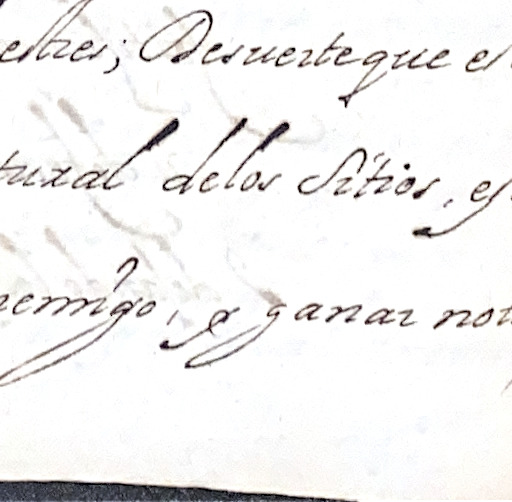 estres; Desuerteque es
tural delos Sitios, es
nemigo, y ganar not